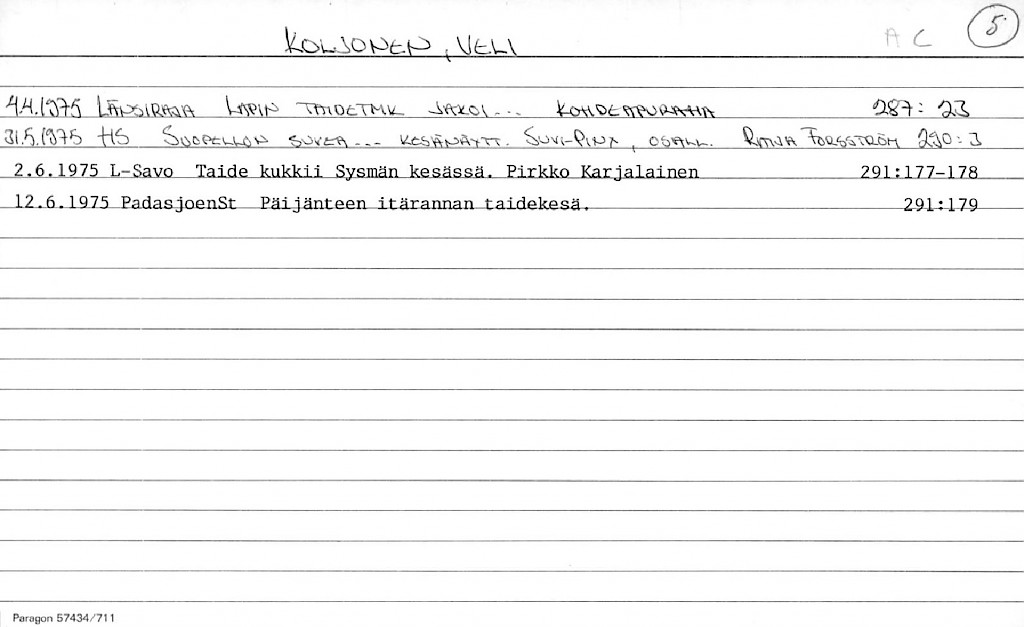 KOLJONEN, VELI A C 5
4.4.1975 LÄNSIRAJA LAPIN TAIDETMK JAKOI... KOHDEAPURAHA 287: 23
31.5.1975 HS SUOPELLON SUVEA... KESÄNÄYTT. SUVI-PINX, OSALL. RITVA FORSSTRÖM 290:3
2.6.1975 L-Savo Taide kukkii Sysmän kesässä. Pirkko Karjalainen 291:177-178
12.6.1975 PadasjoenSt Päijänteen itärannan taidekesä. 291:179
Paragon 57434/711